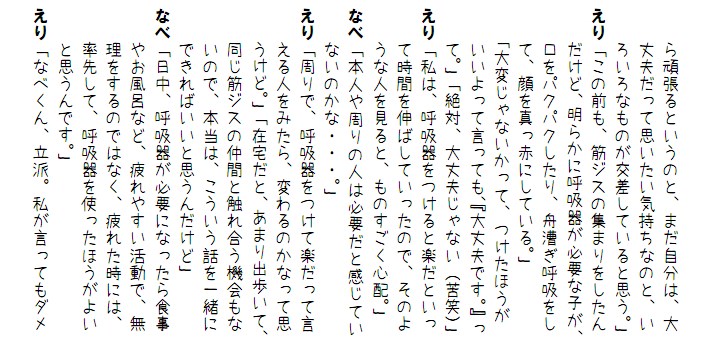 ら頑張るというのと、まだ自分は、大
丈夫だって思いたい気持ちなのと、い
ろいろなものが交差していると思う。」
えり「この前も、筋ジスの集まりをしたん
だけど、明らかに呼吸器が必要な子が、
口をパクパクしたり、舟漕ぎ呼吸をし
て、顔を真っ赤にしている。」
「大変じゃないかって、つけたほうが
いいよって言っても、『大丈夫です。』っ
て。」「絶対、大丈夫じゃない（苦笑）」
えり「私は、呼吸器をつけると楽だといっ
て時間を伸ばしていったので、そのよ
うな人を見ると、ものすごく心配。」
なべ「本人や周りの人は必要だと感じてい
ないのかな・・・。」
えり「周りで、呼吸器をつけて楽だって言
える人をみたら、変わるのかなって思
うけど。」「在宅だと、あまり出歩いて、
同じ筋ジスの仲間と触れ合う機会もな
いので、本当は、こういう話を一緒に
できればいいと思うんだけど」
なべ「日中、呼吸器が必要になったら食事
やお風呂など、疲れやすい活動で、無
理をするのではなく、疲れた時には、
率先して、呼吸器を使ったほうがよい
と思うんです。」
えり「なべくん、立派。私が言ってもダメ